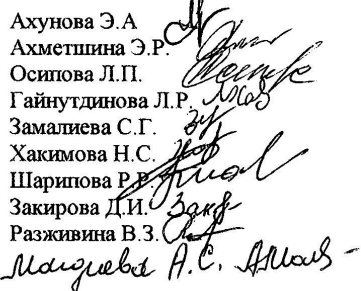 Ахунова Э.А
Ахметшина Э.Р.
Осипова Л.П.
Гайнутдинова Л.Р.
Замалиева С.Г.
Хакимова Н.С.
Шарипова Р.Р.
Закирова Д.И.
Разживина В.З.
А.С.